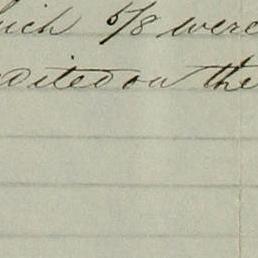 which 5/8 were
dited on the